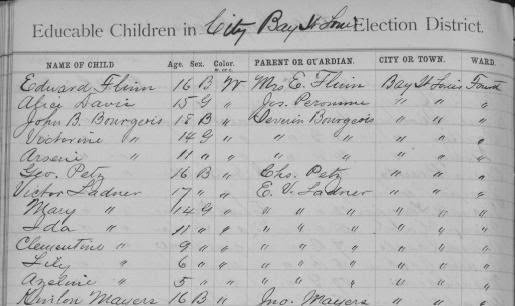 Educable Children in City Bay St Louis Election District.
NAME OF CHILD Age. Sex. Color. W. or C. PARENT OR GUARDIAN. CITY OR TOWN. WARD.
Edward Flinn 16 B W Mrs E. Flinn Bay St Louis Fourth
Alice Davis 15 G " Jos. Peronnne " " " "
John B. Bourgeois 18 B " Severin Bourgeois " " " "
Victorine " 14 G " " " " " " "
Arsene " 11 " " " " " " " "
Geo. Petz 16 B " Chs. Petz " " " "
Victor Ladner 17 " " E. V. Ladner " " " "
Mary " 14 G " " " " " " " "
Ida " 11 " " " " " " " " "
Clementine " 9 " " " " " " " " "
Lily " 6 " " " " " " " " "
Azeline " 5 " " " " " " " " "
Mayers 16 B " Jno. Mayers " " " "